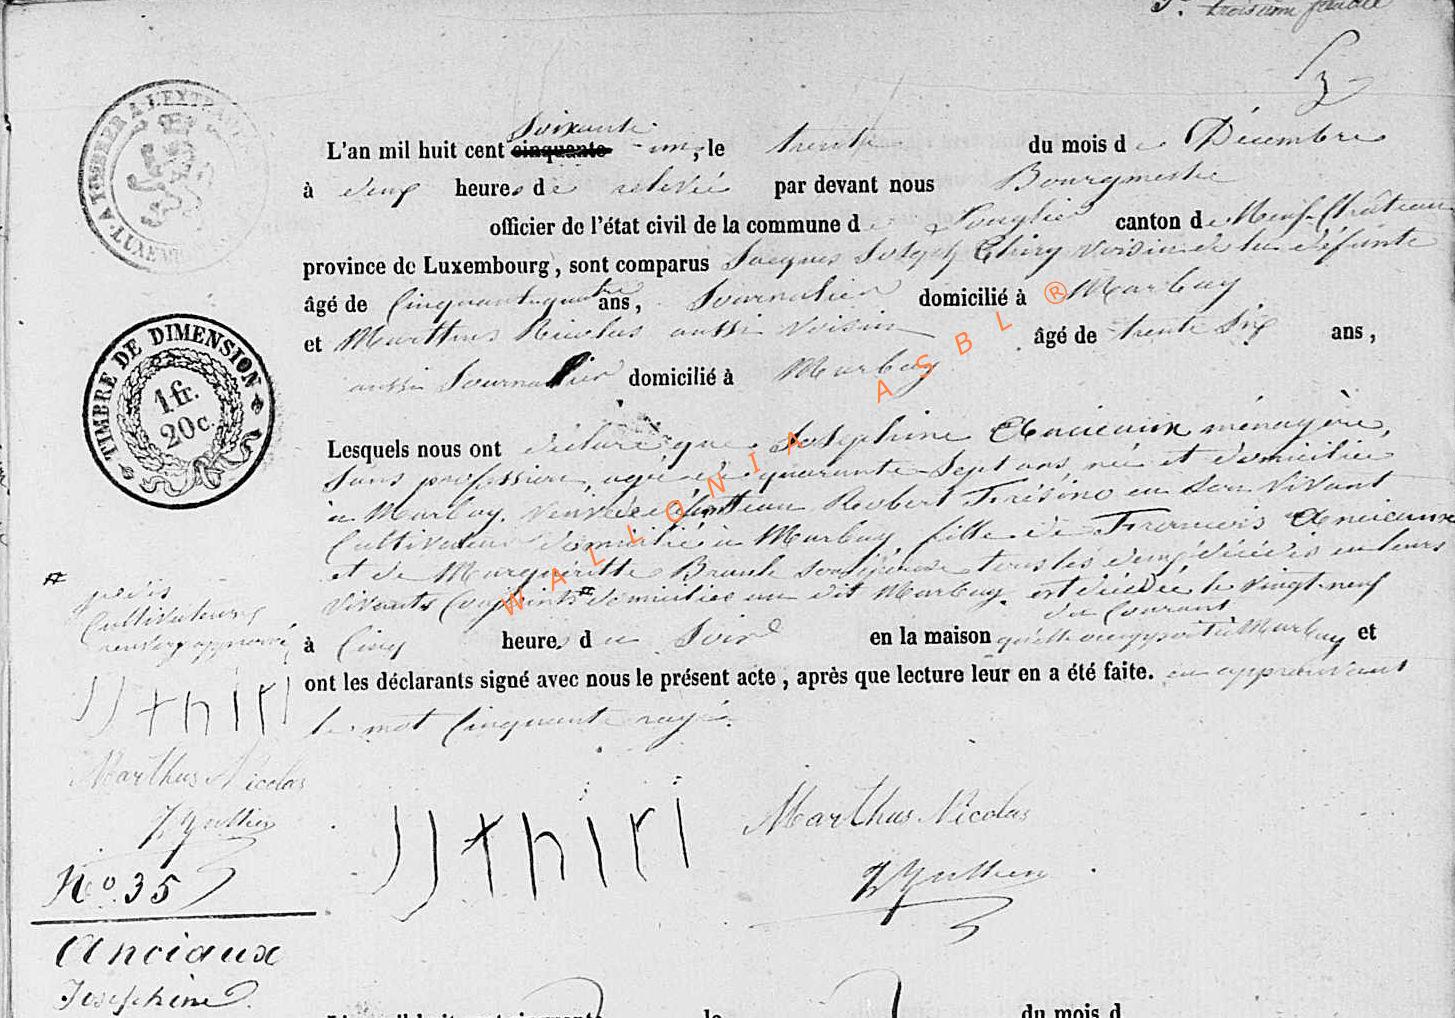 troisième feuille
A TIMBRER À L'EXTRAORD
LUXEMBOURG
L'an mil huit cent cinquante Soixante - un, le trente du mois de Décembre
à deux heures de relevée par devant nous Bourgmestre
officier de l'état civil de la commune de Longlier canton de Neuf-Château
province de Luxembourg, sont comparus Jacques Joseph Thiry voisin de la défunte
âgé de Cinquante-quatre ans, Journalier domicilié à Marbay
et Marthus Nicolas aussi voisin âgé de trente six ans,
aussi Journalier domicilié à Marbay
TIMBRE DE DIMENSION
1 fr.
20 c.
Lesquels nous ont déclaré que Josephine Anciaux ménagère,
Sans profession, agée de quarante Sept ans, née et domiciliée
à Marbay. Veuve de Robert Frésino en son vivant
Cultivateur domicilié à Marbay fille de Francois Anciaux
et de Marguéritte tous les deux décédés en leurs
vivants Conjoints # domiciliés au dit Marbay. est décédée le vingt-neuf
du Courant
à Cinq heures du Soir en la maison qu'elle occuppait à Marbay et
ont les déclarants signé avec nous le présent acte, après que lecture leur en a été faite. en approuvant
le mot Cinquante rayé.
#
Cultivateurs
renvoy approuvé
JJ thiri
Marthus Nicolas
JJ thiri
Marthus Nicolas
N° 35
Anciaux
Josephine
WALLONIA ASBL ®
le
du mois d